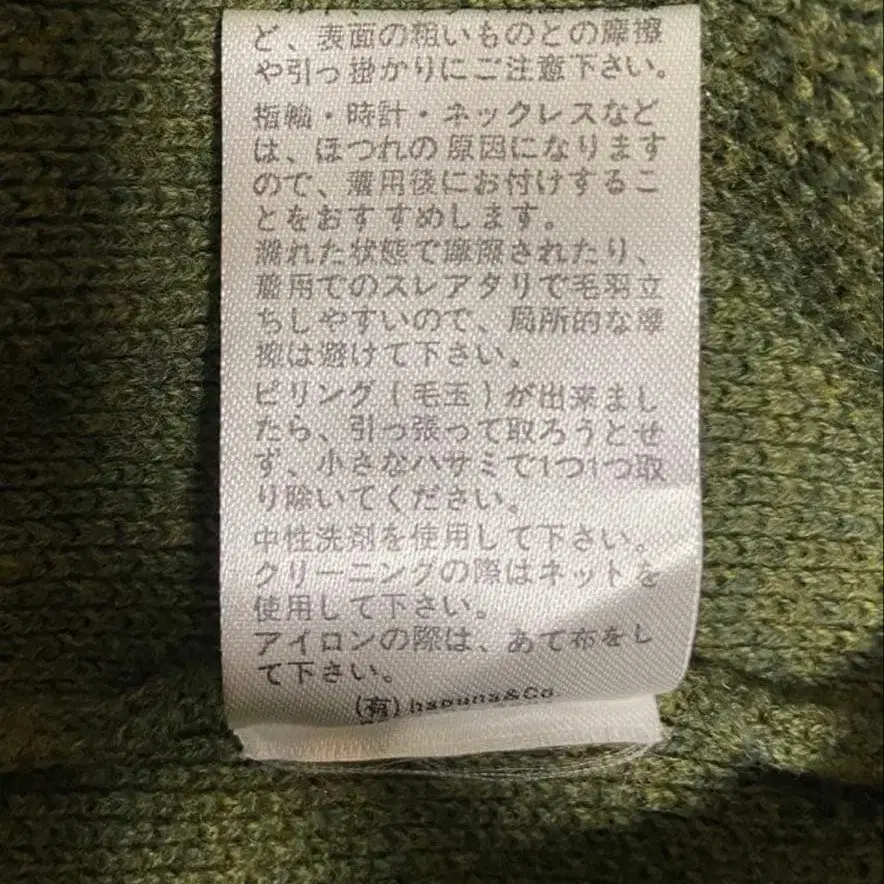 ど、表面の粗いものとの摩擦
や引っ掛かりにご注意下さい。
指輪・時計・ネックレスなど
は、ほつれの原因になります
ので、着用後にお付けするこ
とをおすすめします。
濡れた状態で摩擦されたり、
着用でのスレアタリで毛羽立
ちしやすいので、局所的な摩
擦は避けて下さい。
ピリング(毛玉)が出来まし
たら、引っ張って取ろうとせ
ず、小さなハサミで1つ1つ取
り除いてください。
中性洗剤を使用して下さい。
クリーニングの際はネットを
使用して下さい。
アイロンの際は、あて布をし
て下さい。
(有) hapuna&Co.